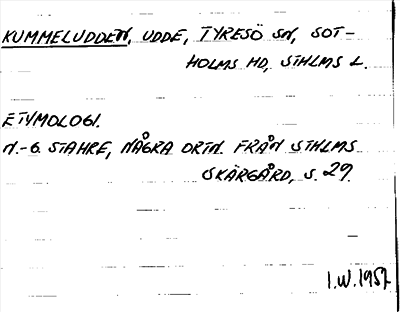 KUMMELUDDEN, UDDE, TYRESÖ SN, SOT-
HOLMS HD, STHLMS L.
ETYMOLOGI.
N.-G. STAHRE, NÅGRA ORTN. FRÅN STHLMS
SKÄRGÅRD, S. 29.
I.W. 1957